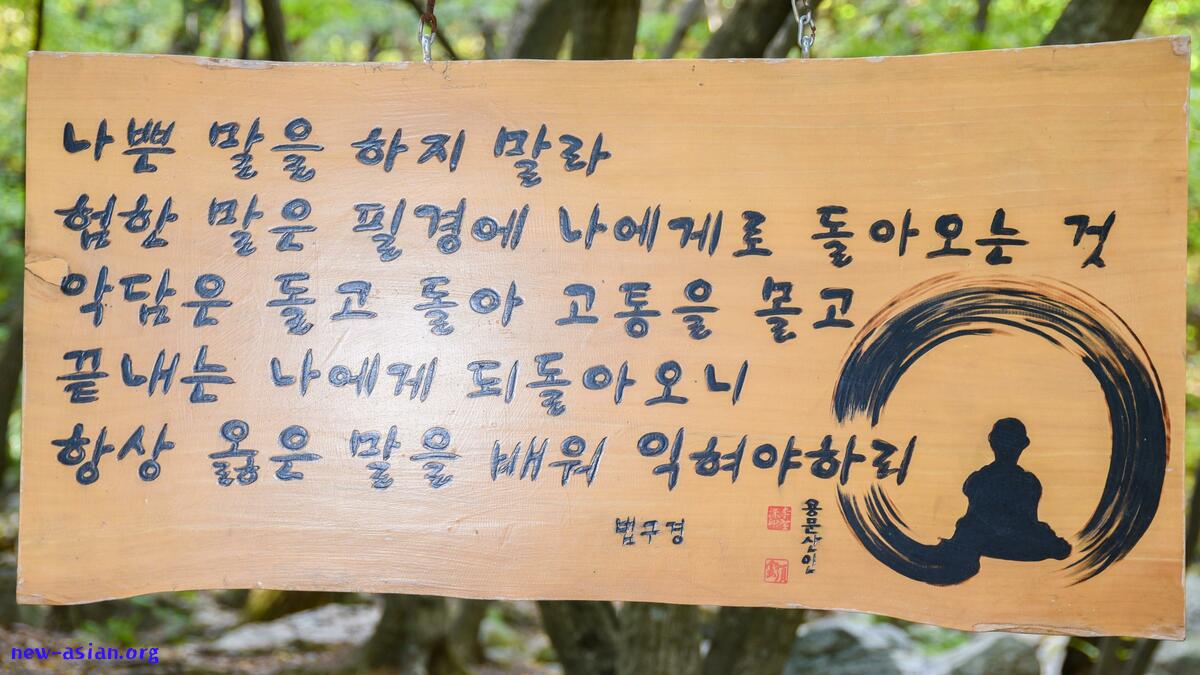 나쁜 말을 하지 말라
험한 말은 필경에 나에게로 돌아오는 것
악담은 돌고 돌아 고통을 몰고
끝내는 나에게 되돌아오니
항상 옳은 말을 배워 익혀야하리
법구경
용문산인
new-asian.org